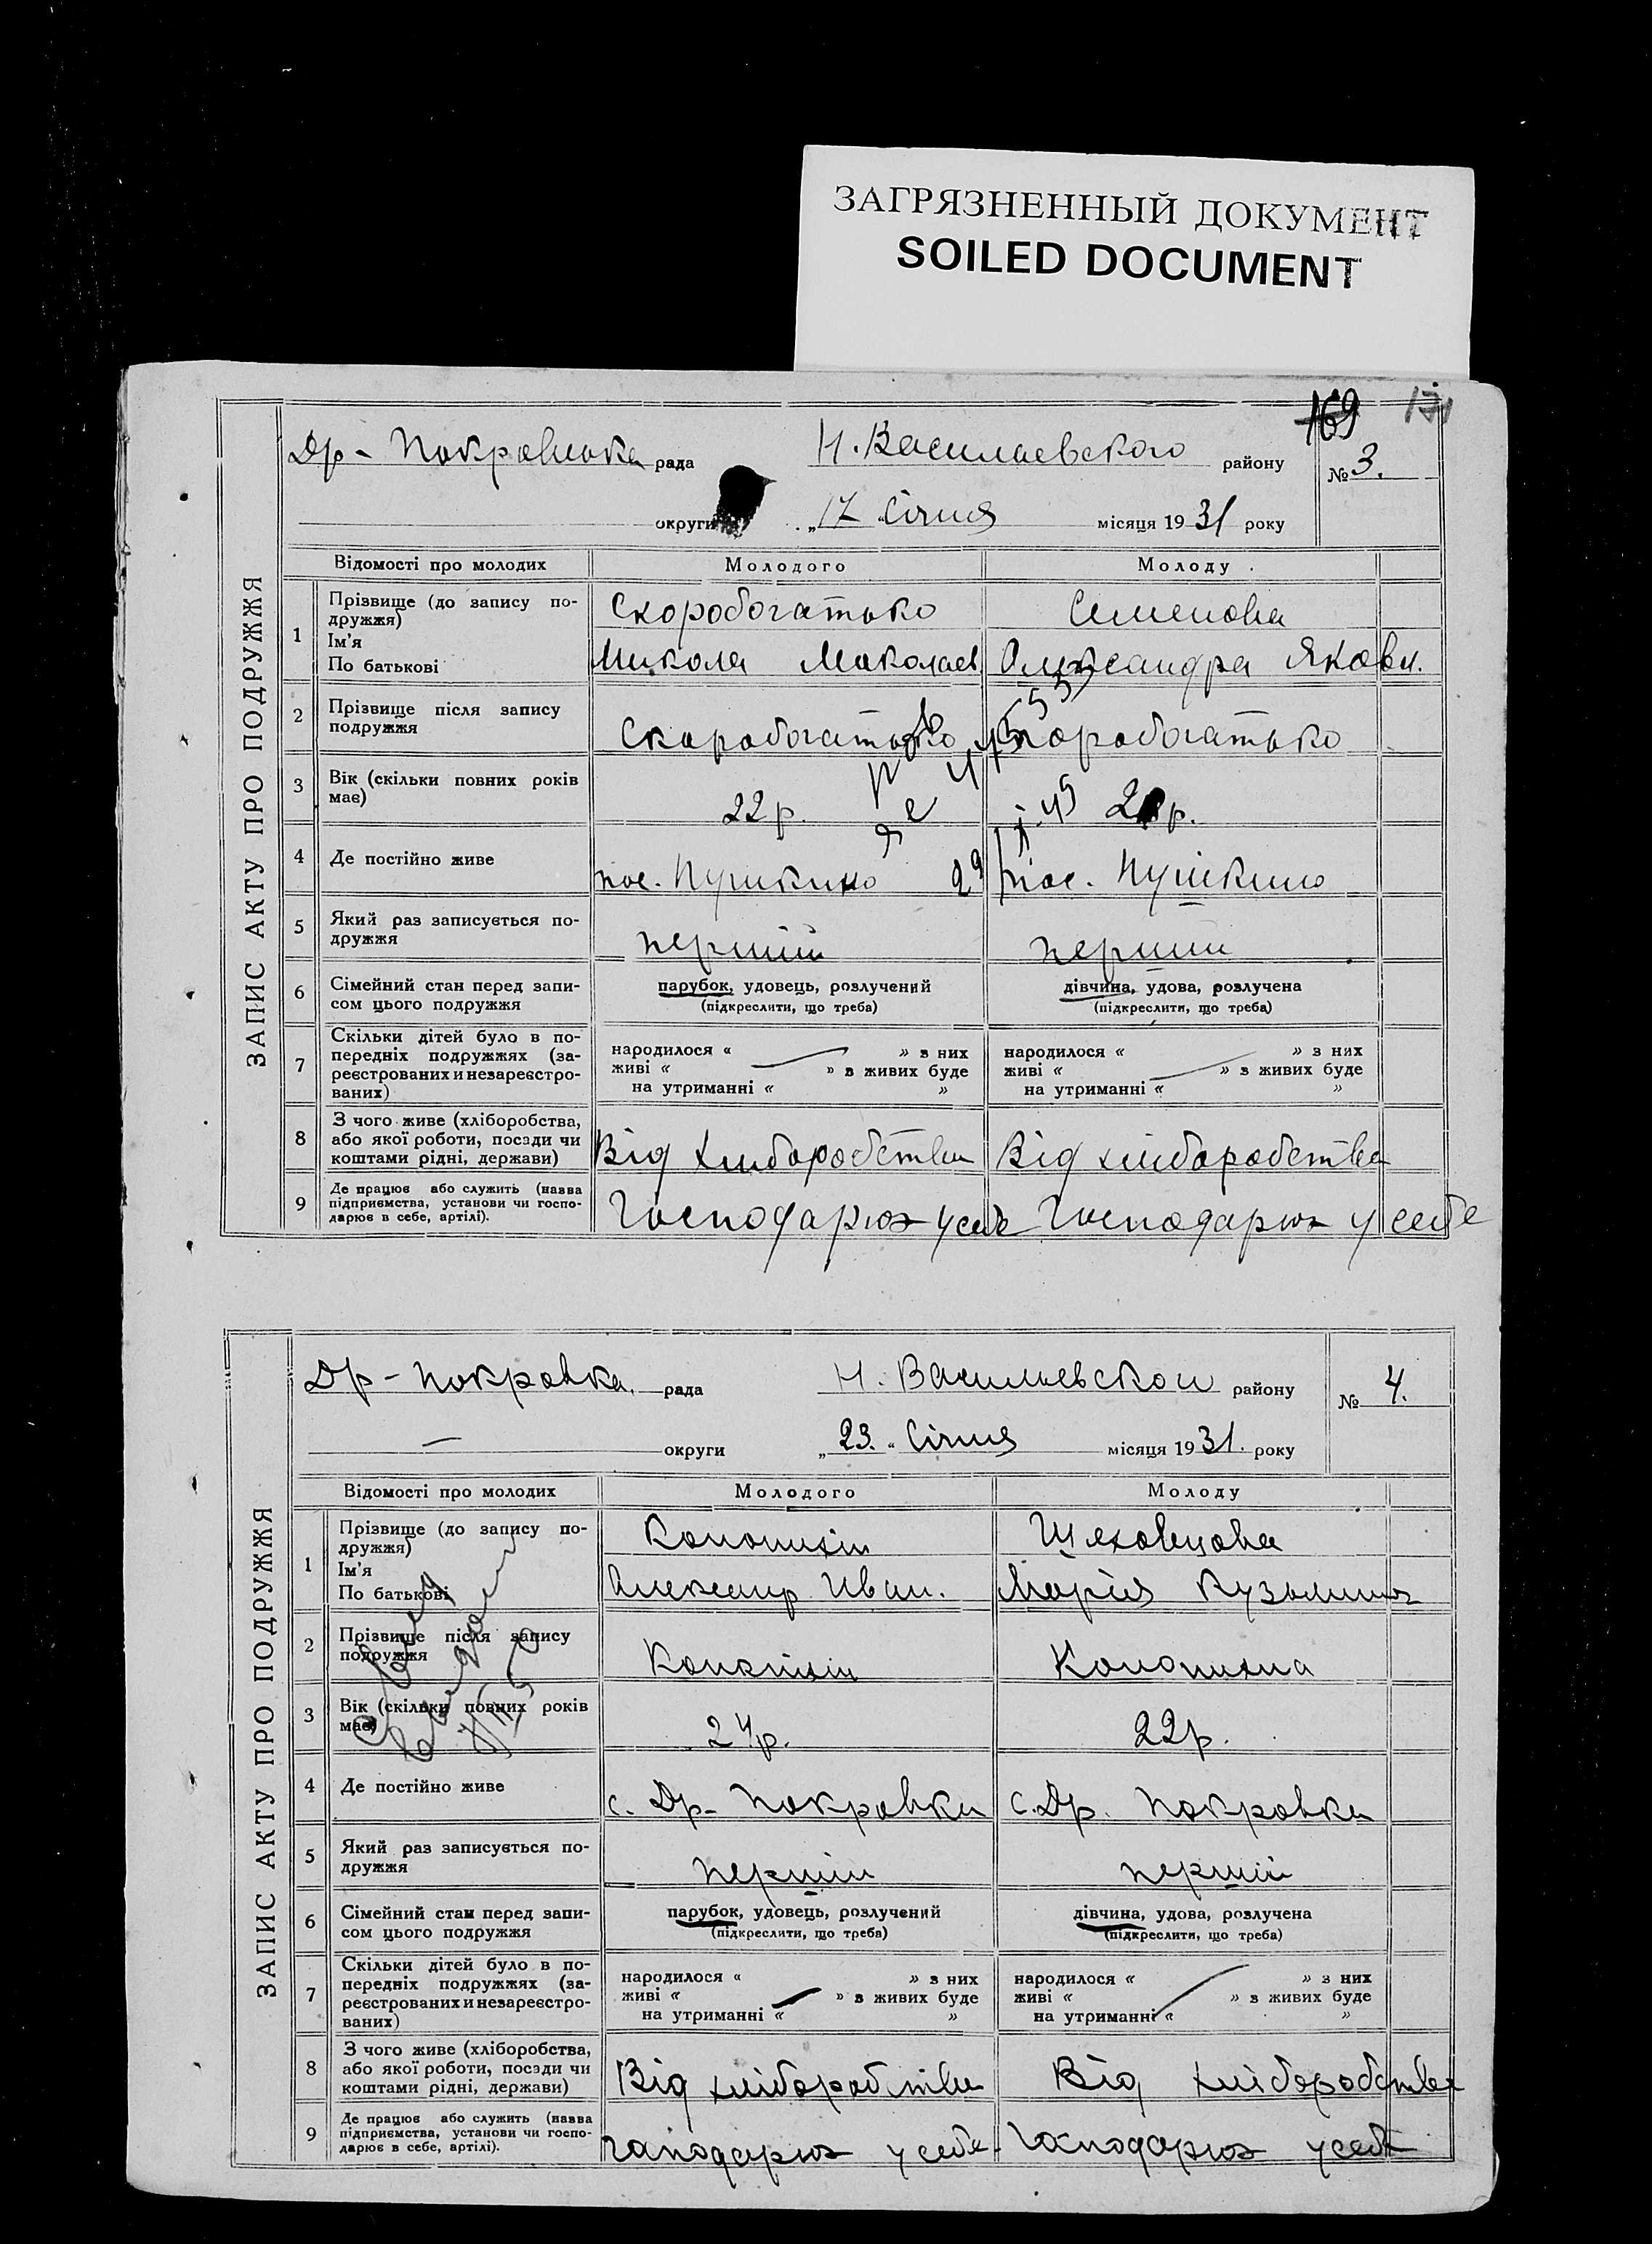 ЗАГРЯЗНЕННЫЙ ДОКУМЕНТ
SOILED DOCUMENT
169 171
ЗАПИС АКТУ ПРО ПОДРУЖЖЯ
Др - Покровська рада Н. Василаевского району № 3.
округи „17 “ Січня місяця 1931 року
Відомості про молодих Молодого Молоду
1 Прізвище (до запису по-
дружжя) Скоробогатько Семенова
Ім'я
По батькові Микола Миколаєв Олександра Яковл.
2 Прізвище після запису
подружжя Скоробогатько Скоробогатько
3 Вік (скільки повних років
має) 22 р. р.
4 Де постійно живе пос. Пушкино пос. Пушкино
5 Який раз записується по-
дружжя перший перший
6 Сімейний стан перед запи-
сом цього подружжя
парубок, удовець, розлучений дівчина, удова, розлучена
(підкреслити, що треба) (підкреслити, що треба)
7 Скільки дітей було в по-
передніх подружжях (за-
реєстрованих и незареєстро-
ваних)
народилося « » з них народилося « » з них
живі « » в живих буде живі « » з живих буде
на утриманні « » на утриманні « »
8 З чого живе (хліборобства,
або якої роботи, посади чи
коштами рідні, держави) Від хліборобства Від хліборобства
9 Де працює або служить (назва
підприємства, установи чи госпо-
дарює в себе, артілі). Господарює у себе Господарює у себе
ЗАПИС АКТУ ПРО ПОДРУЖЖЯ
Др - Покровка. рада Н. Васильевскои району № 4.
— округи „23. “ Січня місяця 1931. року
Відомості про молодих Молодого Молоду
1 Прізвище (до запису по-
дружжя) Конопихін Шеховцова
Ім'я
По батькові Александр Иван. Марія Кузьминич
2 Прізвище після запису
подружжя Конопихін Конопихина
3 Вік (скільки повних років
має) 24 р. 22 р.
4 Де постійно живе с. Др - Покровки с. Др. Покровки
5 Який раз записується по-
дружжя перший перший
6 Сімейний стан перед запи-
сом цього подружжя
парубок, удовець, розлучений дівчина, удова, розлучена
(підкреслити, що треба) (підкреслити, що треба)
7 Скільки дітей було в по-
передніх подружжях (за-
реєстрованих и незареєстро-
ваних)
народилося « » з них народилося « » з них
живі « » в живих буде живі « » з живих буде
на утриманні « » на утриманні « »
8 З чого живе (хліборобства,
або якої роботи, посади чи
коштами рідні, держави) Від хліборобства Від хліборобства
9 Де працює або служить (назва
підприємства, установи чи госпо-
дарює в себе, артілі). Господарює у себе. Господарює у себе